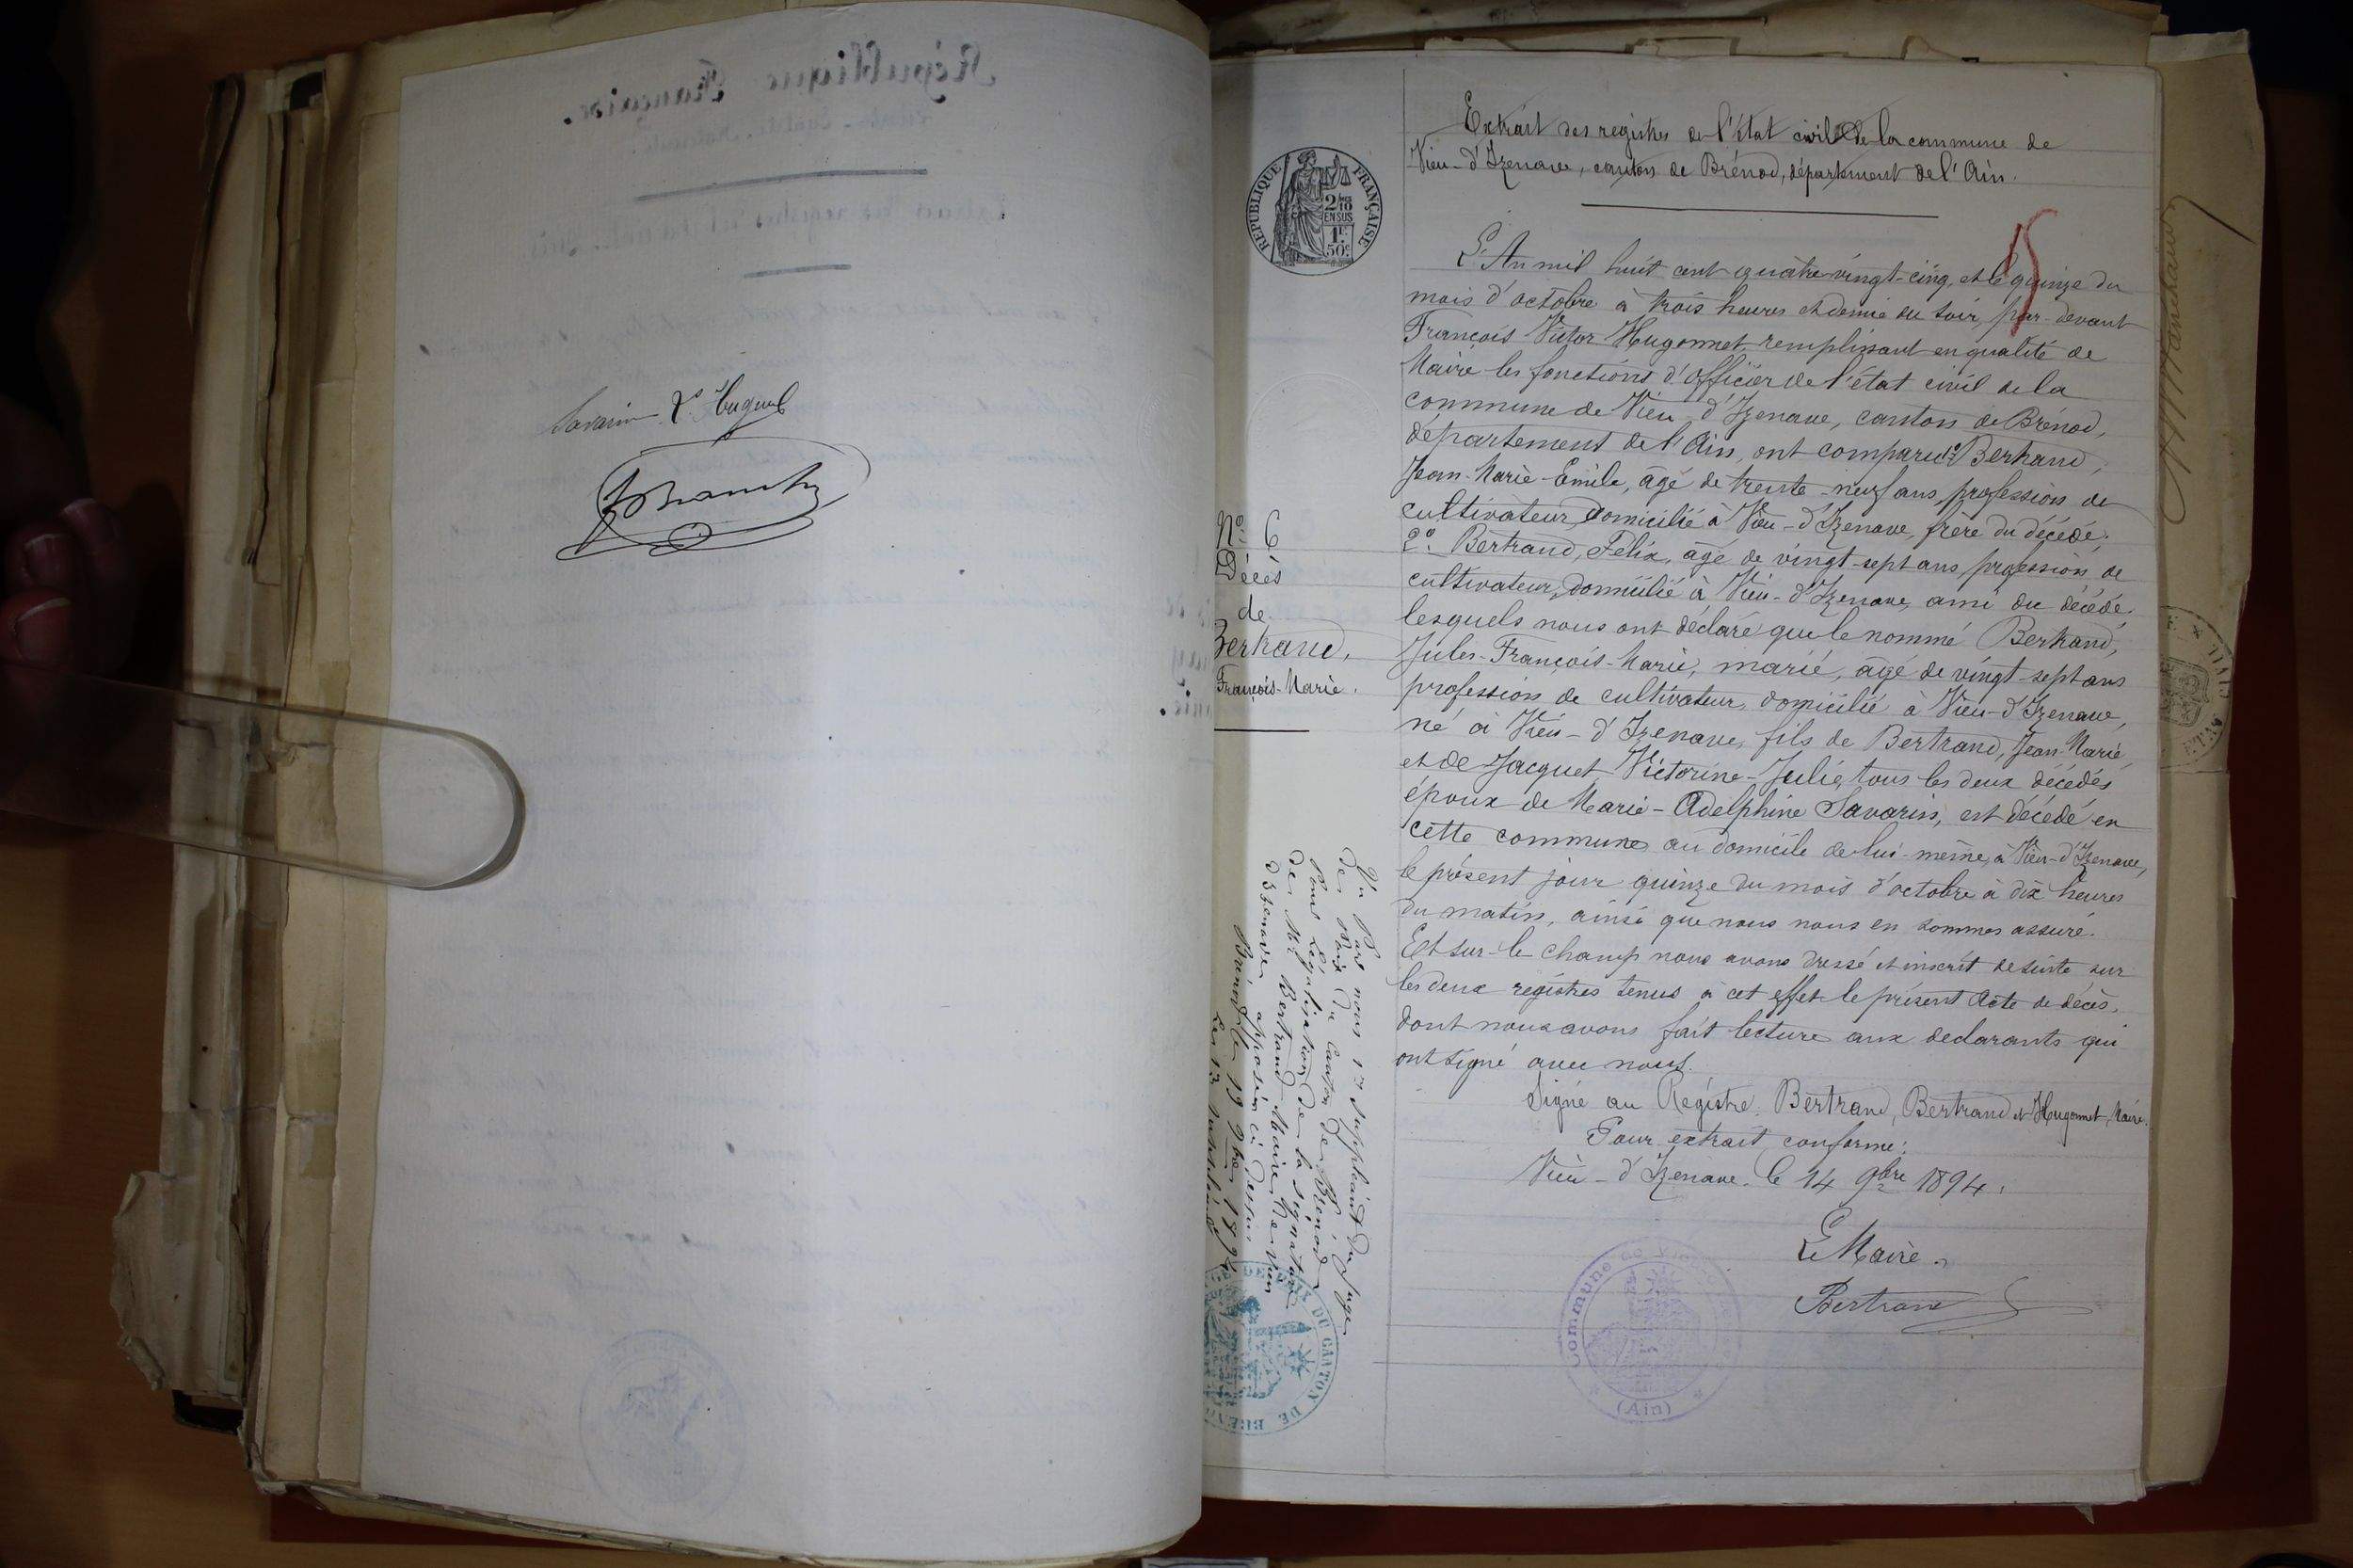 Savarin
REPUBLIQUE FRANÇAISE
2/10
EN SUS
1F.
50c.
Extrait des registres de l'état civil de la commune de
Vieu-d'Izenave, canton de Brénod, département de l'Ain.
L'An mil huit cent quatre-vingt-cinq, et le quinze du
mois d'octobre à trois heures et demie du soir, par-devant
François Victor Hugonnet remplissant en qualité de
Maire les fonctions d'officier de l'état civil de la
commune de Vieu-d'Izenave, canton de Brénod,
département de l'Ain, ont comparu 1° Bertrand,
Jean-Marie-Emile, âgé de trente-neuf ans, profession de
cultivateur, domicilié à Vieu-d'Izenave, frère du décédé;
2° Bertrand, Félix, âgé de vingt-sept ans profession de
cultivateur, domicilié à Vieu-d'Izenave, ami du décédé,
lesquels nous ont déclaré que le nommé Bertrand,
Jules-François-Marie, marié, âgé de vingt-sept ans
profession de cultivateur, domicilié à Vieu-d'Izenave,
né à Vieu-d'Izenave, fils de Bertrand, Jean-Marie,
et de Jacquet Victorine-Julie, tous les deux décédés
époux de Marie-Adelphine Savarin, est décédé en
cette commune, au domicile de lui-même, à Vieu-d'Izenave,
le présent jour quinze du mois d'octobre à dix heures
du matin, ainsi que nous nous en sommes assuré.
Et sur-le-champ nous avons dressé et inscrit de suite sur
les deux régistres tenus à cet effet le présent Acte de décès,
dont nous avons fait lecture aux declarants qui
ont signé avec nous.
Signé au Régistre. Bertrand, Bertrand et Hugonnet, Maire.
Pour extrait conforme:
Vieu-d'Izenave, le 14 9bre 1894.
Le Maire
Bertrand
N° 6
Décès
de
Bertrand,
François-Marie.
Vu Par nous 1er Suppléant du Juge
de Paix du Canton de Brénod
Pour Légalisation de la signature
de Mr Bertrand Maire de Vieu
d'Izenave, apposée ci dessus
Brénod le 19 9bre 1894
Commune de Vi
(Ain)
DE PAIX DU CANTON DE BRENO